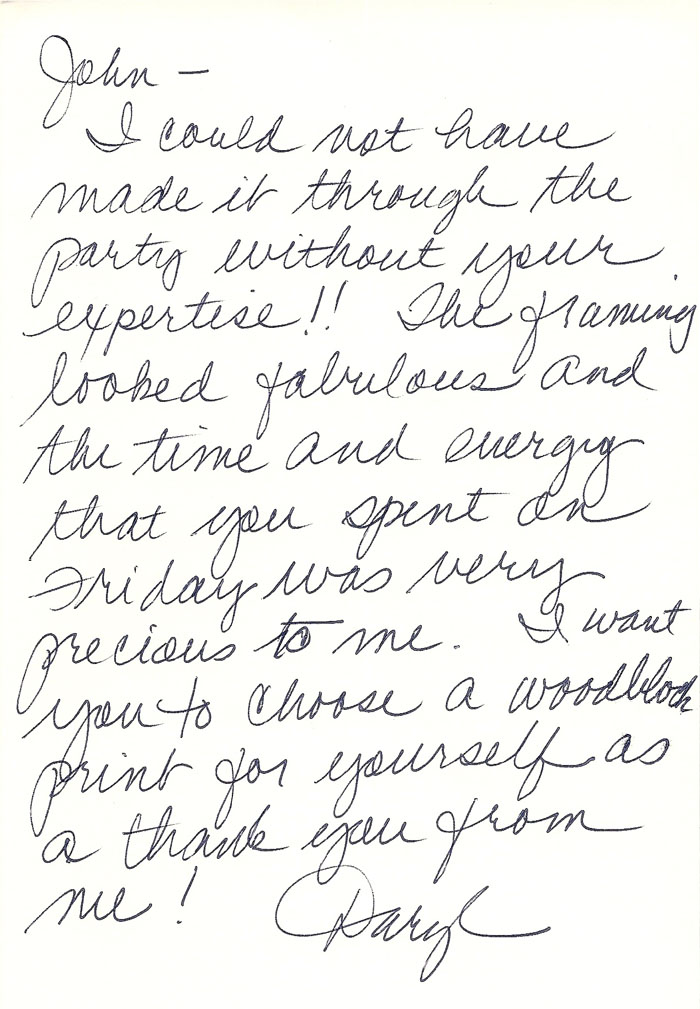 John —
I could not have
made it through the
party without your
expertise!! The framing
looked fabulous and
the time and energy
that you spent on
Friday was very
precious to me. I want
you to choose a woodblock
print for yourself as
a thank you from
me! Daryl